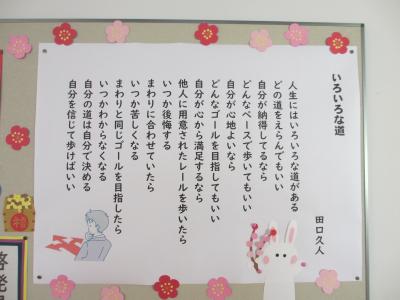 いろいろな道
田口久人
人生にはいろいろな道がある
どの道をえらんでもいい
自分が納得してるなら
どんなペースで歩いてもいい
自分が心地よいなら
どんなゴールを目指してもいい
自分が心から満足するなら
他人に用意されたレールを歩いたら
いつか後悔する
まわりに合わせていたら
いつか苦しくなる
まわりと同じゴールを目指したら
いつかわからなくなる
自分の道は自分で決める
自分を信じて歩けばいい
啓発